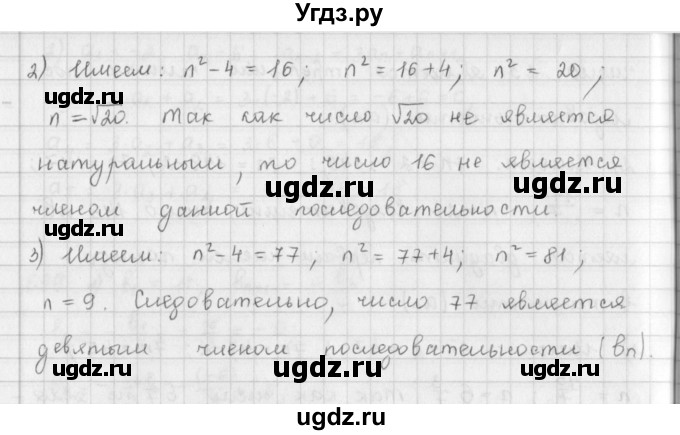 Угдз.ру
2) Имеем: n²-4=16; n²=16+4; n²=20;
ugdz.ru ugdz.ru
n=√20. Так как число √20 не является
натуральным, то число 16 не является
ugdz.ru
членом данной последовательности.
ugdz.ru ugdz.ru
3) Имеем: n²-4=77; n²=77+4; n²=81;
n=9. Следовательно, число 77 является
ugdz.ru
девятым членом последовательности (вn).
ugdz.ru ugdz.ru
ugdz.ru